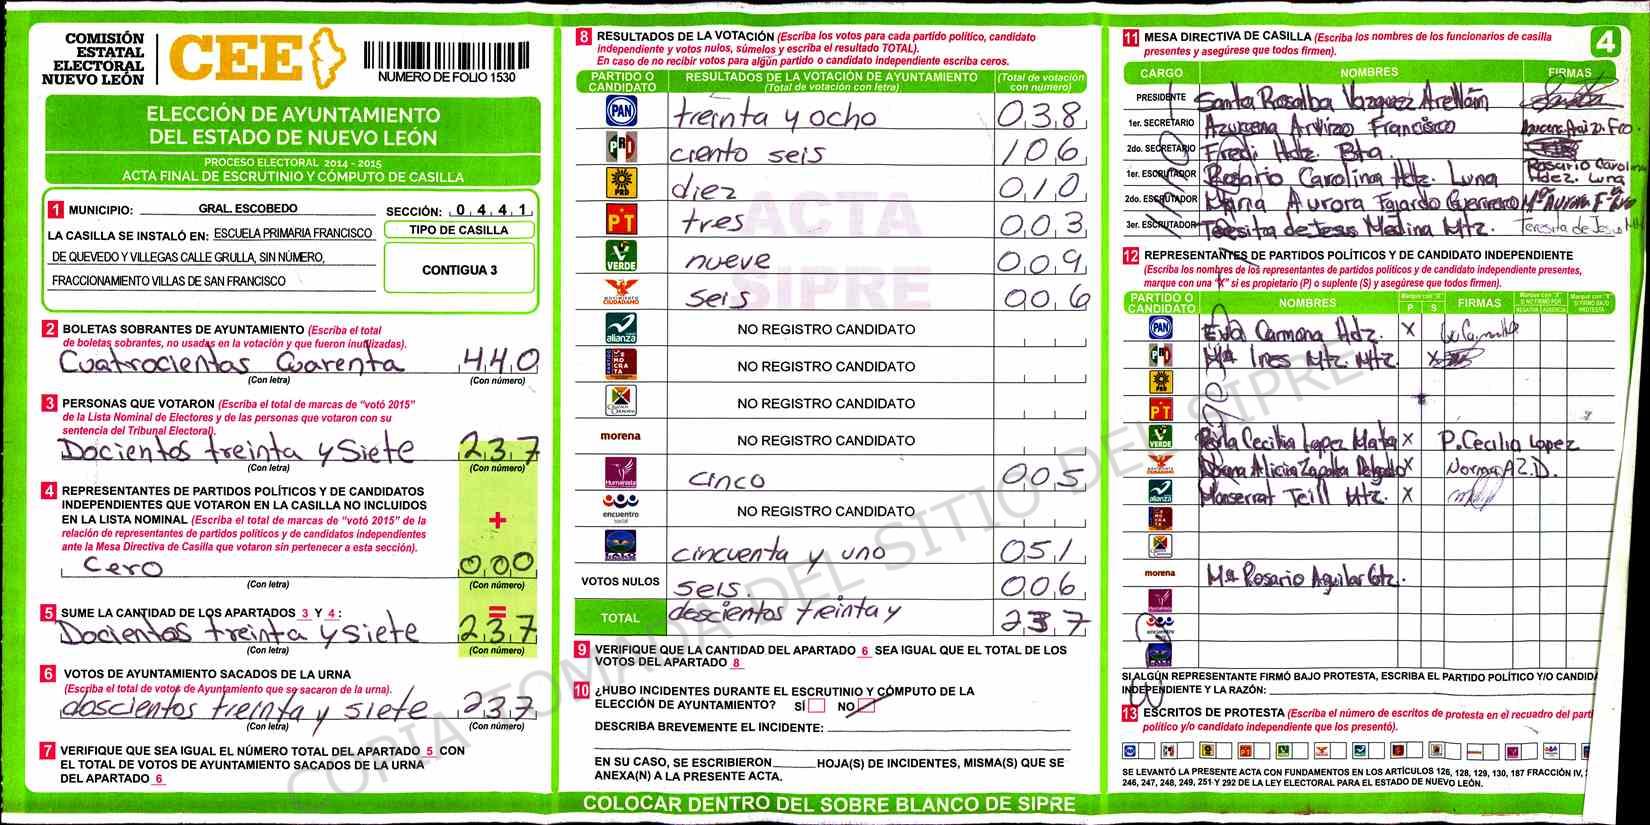 COMISIÓN
ESTATAL
ELECTORAL
NUEVO LEÓN
CEE
NUMERO DE FOLIO 1530
ELECCIÓN DE AYUNTAMIENTO
DEL ESTADO DE NUEVO LEÓN
PROCESO ELECTORAL 2014 - 2015
ACTA FINAL DE ESCRUTINIO Y CÓMPUTO DE CASILLA
1 MUNICIPIO: GRAL. ESCOBEDO SECCIÓN: 0 4 4 1
LA CASILLA SE INSTALÓ EN: ESCUELA PRIMARIA FRANCISCO
DE QUEVEDO Y VILLEGAS CALLE GRULLA, SIN NÚMERO,
FRACCIONAMIENTO VILLAS DE SAN FRANCISCO
TIPO DE CASILLA
CONTIGUA 3
2 BOLETAS SOBRANTES DE AYUNTAMIENTO (Escriba el total
de boletas sobrantes, no usadas en la votación y que fueron inutilizadas).
Cuatrocientas Cuarenta 440
(Con letra) (Con número)
3 PERSONAS QUE VOTARON (Escriba el total de marcas de "votó 2015"
de la Lista Nominal de Electores y de las personas que votaron con su
sentencia del Tribunal Electoral).
Docientos treinta y Siete 237
(Con letra) (Con número)
4 REPRESENTANTES DE PARTIDOS POLÍTICOS Y DE CANDIDATOS
INDEPENDIENTES QUE VOTARON EN LA CASILLA NO INCLUIDOS
EN LA LISTA NOMINAL (Escriba el total de marcas de "votó 2015" de la
relación de representantes de partidos políticos y de candidatos independientes
ante la Mesa Directiva de Casilla que votaron sin pertenecer a esta sección).
+
Cero 000
(Con letra) (Con número)
5 SUME LA CANTIDAD DE LOS APARTADOS 3 Y 4 : =
Docientos treinta y siete 237
(Con letra) (Con número)
6 VOTOS DE AYUNTAMIENTO SACADOS DE LA URNA
(Escriba el total de votos de Ayuntamiento que se sacaron de la urna).
doscientos treinta y siete 237
(Con letra) (Con número)
7 VERIFIQUE QUE SEA IGUAL EL NÚMERO TOTAL DEL APARTADO 5 CON
EL TOTAL DE VOTOS DE AYUNTAMIENTO SACADOS DE LA URNA
DEL APARTADO 6
8 RESULTADOS DE LA VOTACIÓN (Escriba los votos para cada partido político, candidato
independiente y votos nulos, súmelos y escriba el resultado TOTAL).
En caso de no recibir votos para algún partido o candidato independiente escriba ceros.
PARTIDO O CANDIDATO RESULTADOS DE LA VOTACIÓN DE AYUNTAMIENTO (Total de votación con letra) (Total de votación con número)
PAN treinta y ocho 038
PRI ciento seis 106
PRD diez 010
PT tres 003
VERDE nueve 009
MOVIMIENTO CIUDADANO seis 006
alianza NO REGISTRO CANDIDATO
DEMOCRATA NO REGISTRO CANDIDATO
NO REGISTRO CANDIDATO
morena NO REGISTRO CANDIDATO
Humanista cinco 005
encuentro social NO REGISTRO CANDIDATO
cincuenta y uno 051
VOTOS NULOS seis. 006
TOTAL doscientos treinta y 237
ACTA
SIPRE
9 VERIFIQUE QUE LA CANTIDAD DEL APARTADO 6 SEA IGUAL QUE EL TOTAL DE LOS
VOTOS DEL APARTADO 8
10 ¿HUBO INCIDENTES DURANTE EL ESCRUTINIO Y CÓMPUTO DE LA
ELECCIÓN DE AYUNTAMIENTO? SÍ NO
DESCRIBA BREVEMENTE EL INCIDENTE:
EN SU CASO, SE ESCRIBIERON HOJA(S) DE INCIDENTES, MISMA(S) QUE SE
ANEXA(N) A LA PRESENTE ACTA.
COLOCAR DENTRO DEL SOBRE BLANCO DE SIPRE
11 MESA DIRECTIVA DE CASILLA (Escriba los nombres de los funcionarios de casilla
presentes y asegúrese que todos firmen).
4
CARGO NOMBRES FIRMAS
PRESIDENTE Santa Rosalba Vazquez Arellan
1er. SECRETARIO Azucena Arvizo Francisco
2do. SECRETARIO Fredi Hdz. Bta.
1er. ESCRUTADOR Rosario Carolina Hdz. Luna Rosario Carolina Hdez. Luna
2do. ESCRUTADOR Maria Aurora Fajardo Guerrero
3er. ESCRUTADOR Teresita de Jesus Medina Mtz. Teresita de Jesus
12 REPRESENTANTES DE PARTIDOS POLÍTICOS Y DE CANDIDATO INDEPENDIENTE
(Escriba los nombres de los representantes de partidos políticos y de candidato independiente presentes,
marque con una "X" si es propietario (P) o suplente (S) y asegúrese que todos firmen).
PARTIDO O CANDIDATO NOMBRES P. S FIRMAS
PAN Eva Carmona Hdz. X
PRI Ma Ines Mtz. Mtz. X
PRD
PT
VERDE Perla Cecilia Lopez Mata X P. Cecilia Lopez
Norma Alicia Zapata Delgado X Norma A Z. D.
alianza Monserrat Teill Mtz. X
morena Ma Rosario Aguilar Gtz.
Humanista
encuentro
SI ALGÚN REPRESENTANTE FIRMÓ BAJO PROTESTA, ESCRIBA EL PARTIDO POLÍTICO Y/O CANDIDA
INDEPENDIENTE Y LA RAZÓN:
13 ESCRITOS DE PROTESTA (Escriba el número de escritos de protesta en el recuadro del parti
político y/o candidato independiente que los presentó).
SE LEVANTÓ LA PRESENTE ACTA CON FUNDAMENTOS EN LOS ARTÍCULOS 126, 128, 129, 130, 187 FRACCIÓN IV,
246, 247, 248, 249, 251 Y 292 DE LA LEY ELECTORAL PARA EL ESTADO DE NUEVO LEÓN.
COPIA TOMADA DEL SITIO DEL SIPRE